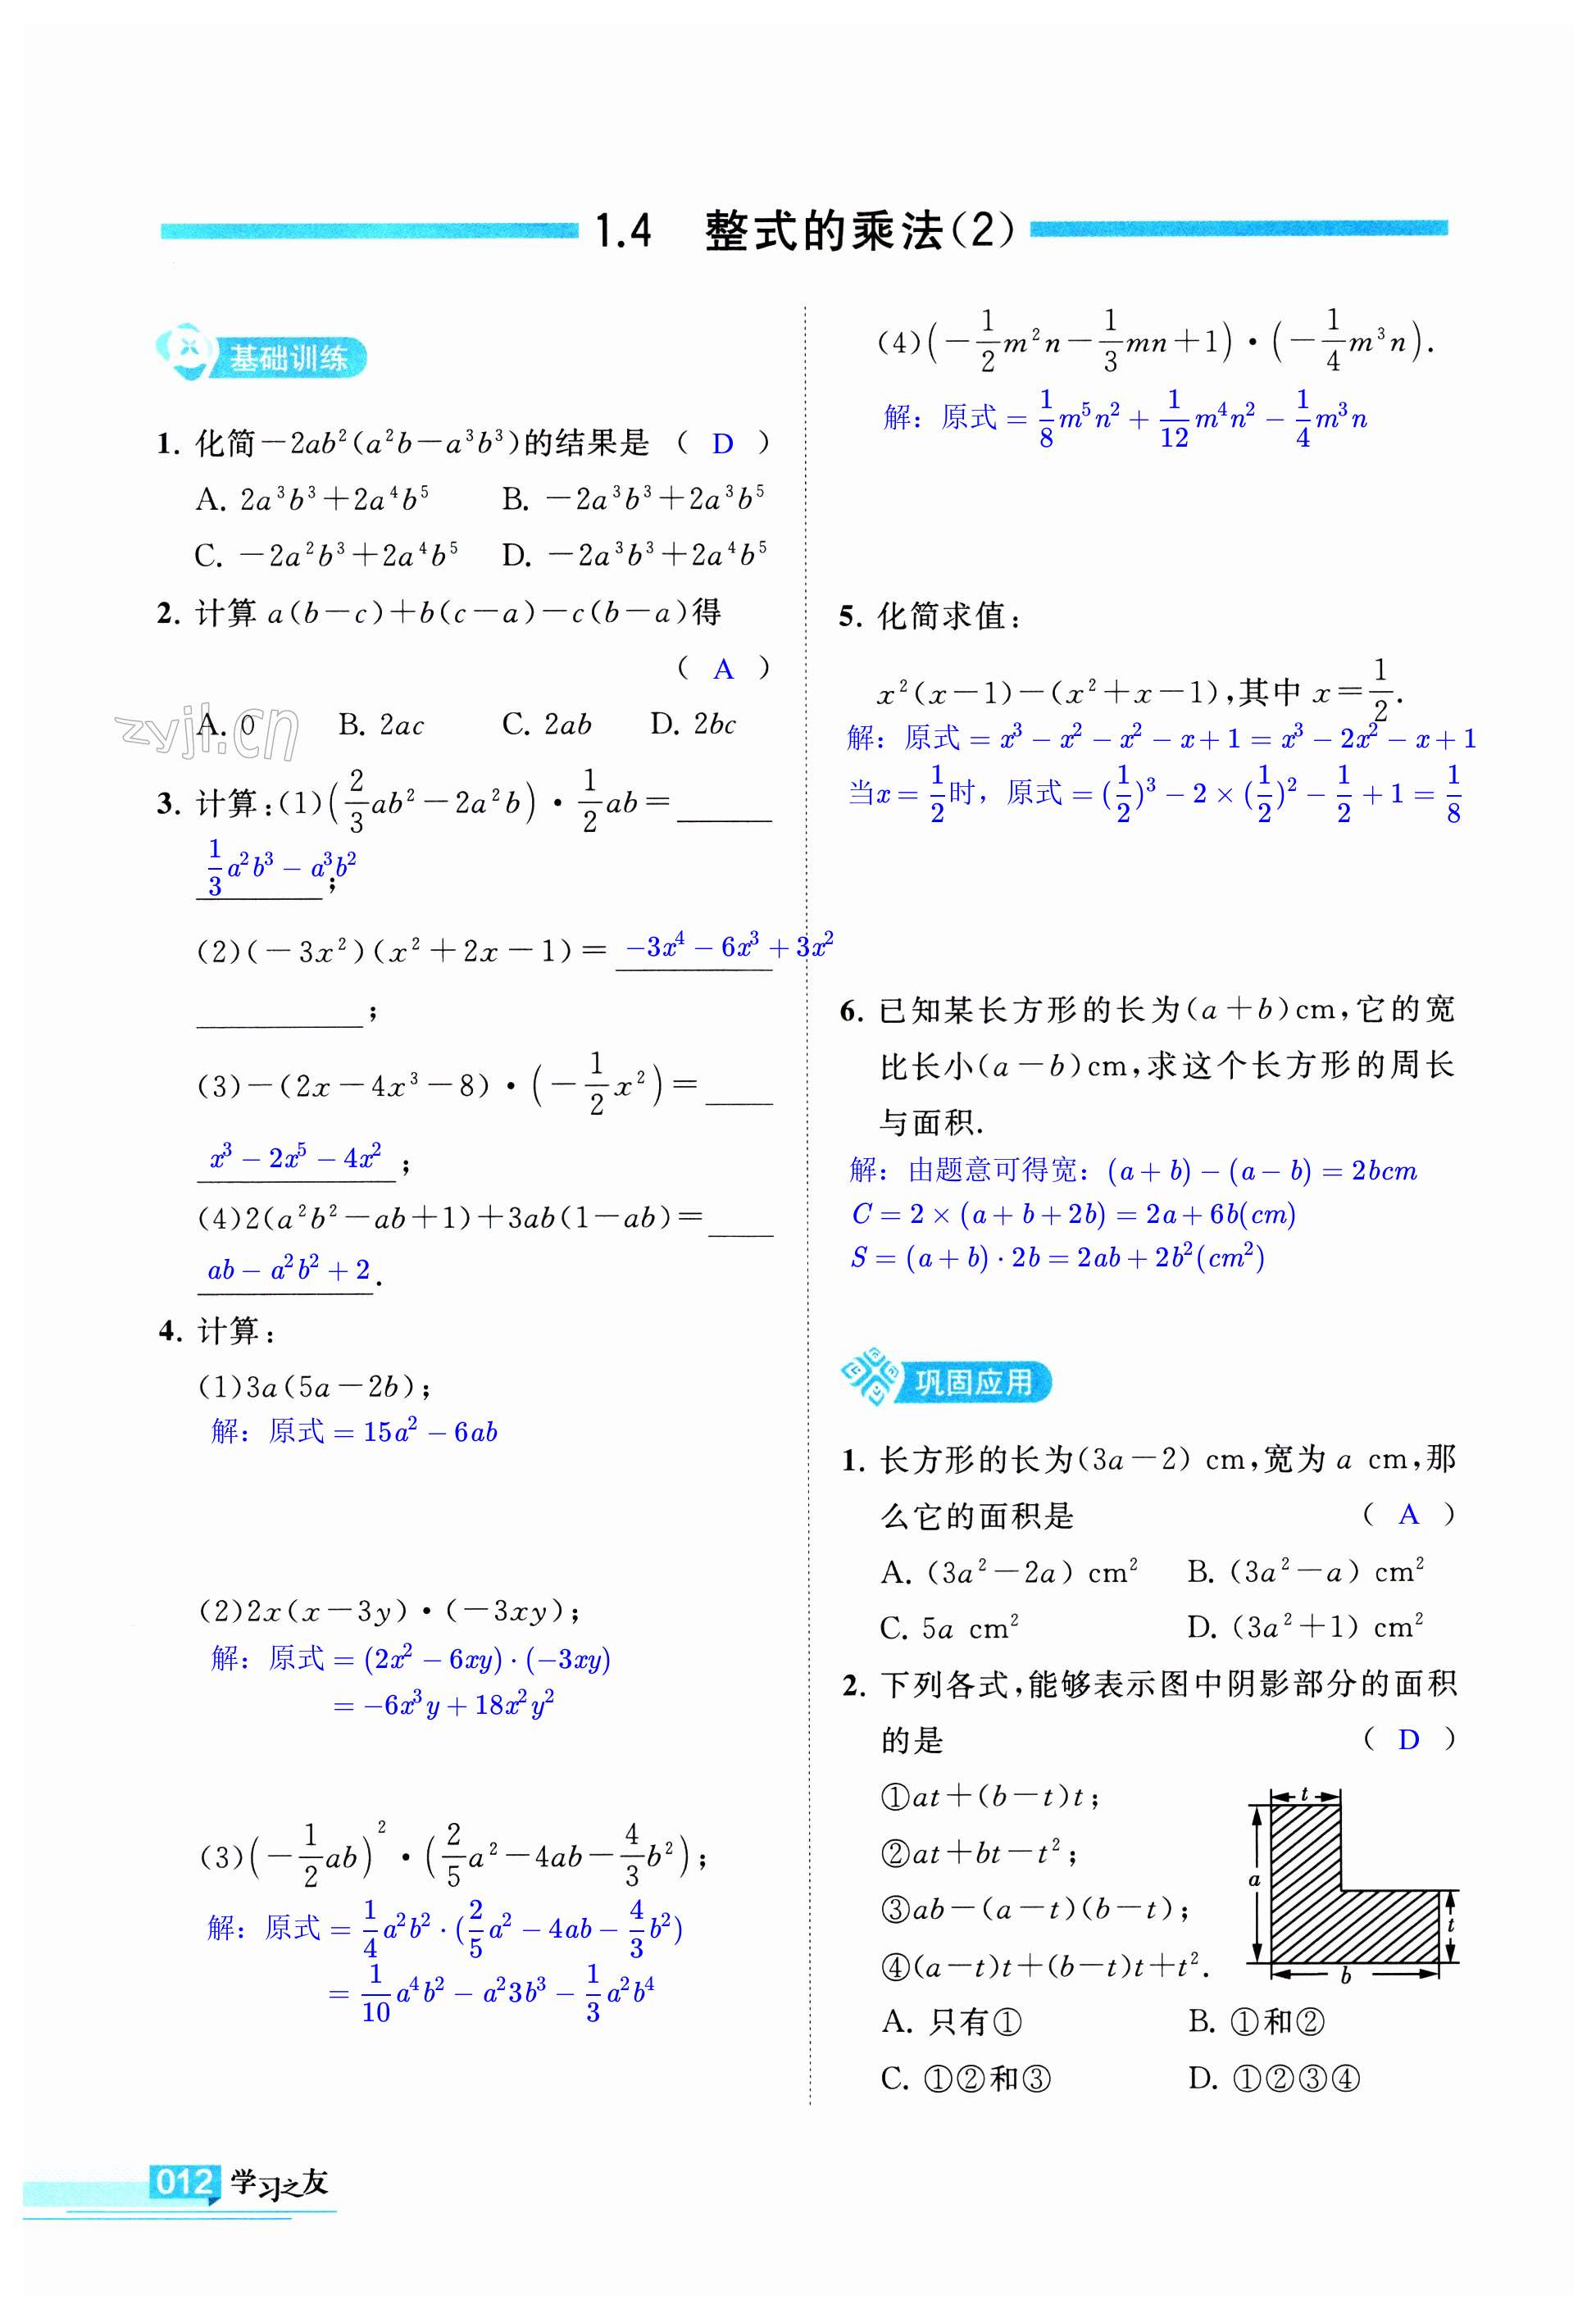 1.4 整式的乘法(2)
基础训练
1. 化简－2ab²(a²b－a³b³)的结果是 ( D )
A. 2a³b³＋2a⁴b⁵ B. －2a³b³＋2a³b⁵
C. －2a²b³＋2a⁴b⁵ D. －2a³b³＋2a⁴b⁵
2. 计算 a(b－c)＋b(c－a)－c(b－a)得
( A )
A. 0 B. 2ac C. 2ab D. 2bc
zyjl.cn
3. 计算:(1)(2/3 ab²－2a²b)·1/2 ab＝
1/3 a²b³ − a³b² ;
(2)(－3x²)(x²＋2x－1)＝ −3x⁴ − 6x³ + 3x²
;
(3)－(2x－4x³－8)·(－1/2 x²)＝
x³ − 2x⁵ − 4x² ;
(4)2(a²b²－ab＋1)＋3ab(1－ab)＝
ab − a²b² + 2 .
4. 计算:
(1)3a(5a－2b);
解：原式 = 15a² − 6ab
(2)2x(x－3y)·(－3xy);
解：原式 = (2x² − 6xy)·(−3xy)
= −6x³y + 18x²y²
(3)(－1/2 ab)²·(2/5 a²－4ab－4/3 b²);
解：原式 = 1/4 a²b²·(2/5 a² − 4ab − 4/3 b²)
= 1/10 a⁴b² − a²3b³ − 1/3 a²b⁴
(4)(－1/2 m²n－1/3 mn＋1)·(－1/4 m³n).
解：原式 = 1/8 m⁵n² + 1/12 m⁴n² − 1/4 m³n
5. 化简求值:
x²(x－1)－(x²＋x－1),其中 x＝1/2.
解：原式 = x³ − x² − x² − x + 1 = x³ − 2x² − x + 1
当x = 1/2时，原式 = (1/2)³ − 2 × (1/2)² − 1/2 + 1 = 1/8
6. 已知某长方形的长为(a＋b)cm,它的宽
比长小(a－b)cm,求这个长方形的周长
与面积.
解：由题意可得宽：(a + b) − (a − b) = 2bcm
C = 2 × (a + b + 2b) = 2a + 6b(cm)
S = (a + b)·2b = 2ab + 2b²(cm²)
巩固应用
1. 长方形的长为(3a－2) cm,宽为 a cm,那
么它的面积是 ( A )
A. (3a²－2a) cm² B. (3a²－a) cm²
C. 5a cm² D. (3a²＋1) cm²
2. 下列各式,能够表示图中阴影部分的面积
的是 ( D )
①at＋(b－t)t;
②at＋bt－t²;
③ab－(a－t)(b－t);
④(a－t)t＋(b－t)t＋t².
t
a
t
b
A. 只有① B. ①和②
C. ①②和③ D. ①②③④
012 学习之友